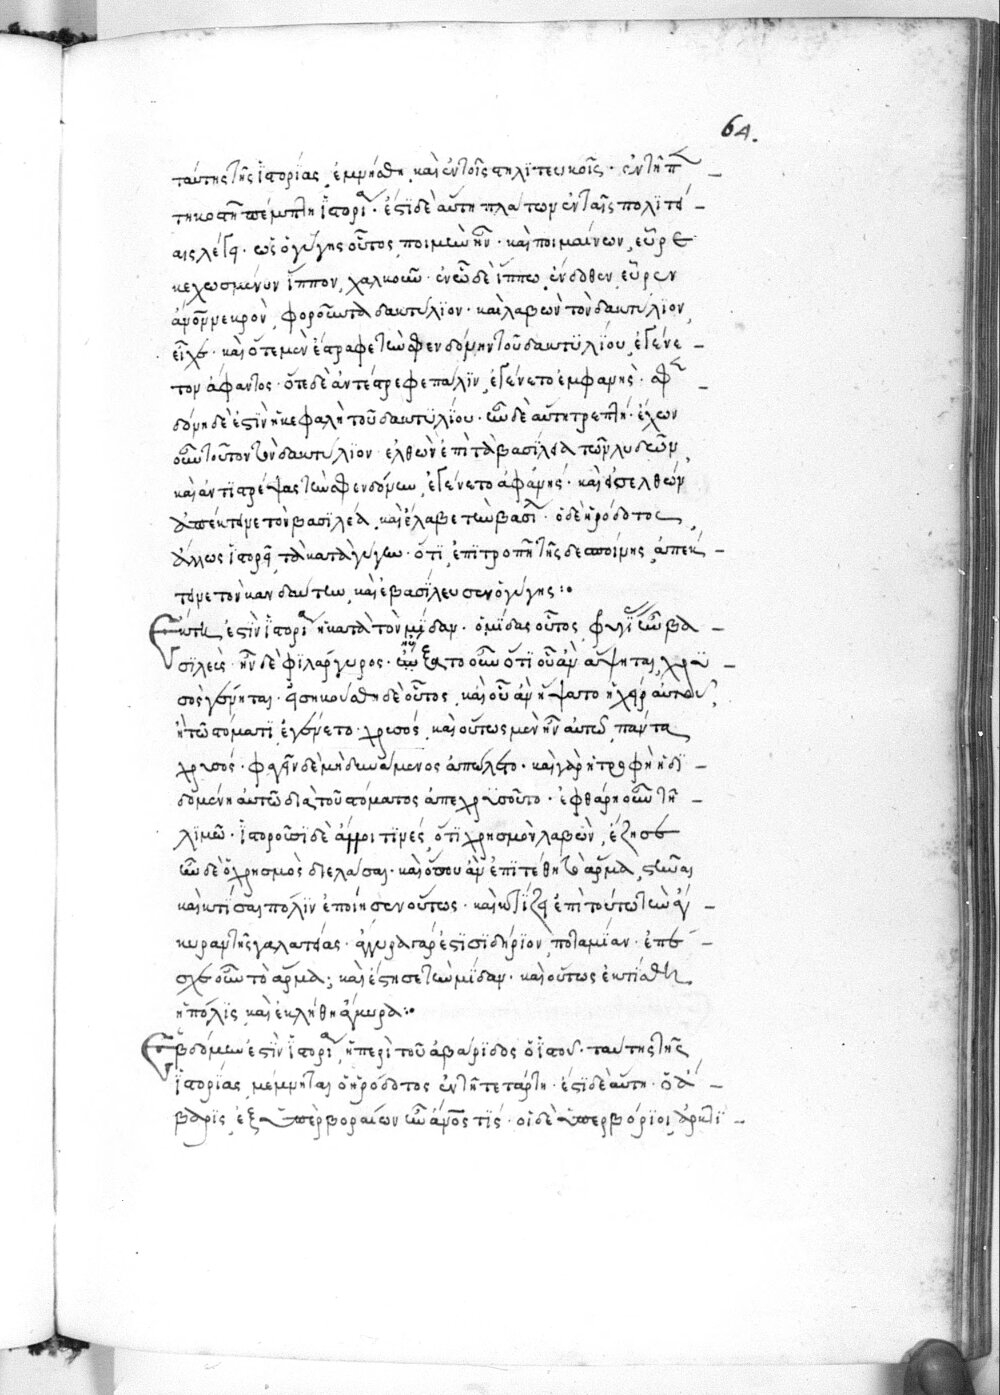 64.
ταύτης τῆς ἱστορίας ἐμνήσθη καὶ ἐν τοῖς στηλιτευτικοῖς· ἐν τῆ π
τηκοστῆ πέμπτη ἱστορί· ἐστὶ δὲ αὕτη πλάτων ἐν ταῖς πολιτεί
αις λέγει· ὡς ὁ γύγης οὗτος ποιμὼν ἦν· καὶ ποιμαίνων, εὗρε
κεχωσμένον ἵππον χαλκοῦν· ἐν ὧ δὲ ἵππω ἔνδοθεν εὗρεν
ἄνον νεκρὸν φοροῦντα δακτύλιον· καὶ λαβὼν τὸν δακτύλιον
εἶχε· καὶ ὅτε μὲν ἔστρεφε τὴν σφενδόνην τοῦ δακτυλίου, ἐγένε
τον ἄφαντος· ὅτε δὲ ἀντέστρεφε πάλιν, ἐγένετο ἐμφανής· σφ
δόνη δὲ ἐστὶν ἡ κεφαλὴ τοῦ δακτυλίου· ὧδε αὕτη τρεπτή· ἔχων
οὖν τοῦτον τὸν δακτύλιον ἐλθὼν ἐπὶ τὰ βασίλεια τῶν λυδῶν
καὶ ἀντιστρέψας τὴν σφενδόνην, ἐγένετο ἀφανής· καὶ εἰσελθών
ἀπέκτεινε τὸν βασιλέα καὶ ἔλαβε τὴν βασι· ὁ δὲ ἡρόδοτος
ἄλλως ἱστορεῖ τὰ κατὰ γύγην· ὅτι ἐπιτροπῆ τῆς δεσποίνης ἀπέκ
τεινε τὸν κανδαύλην καὶ ἐβασίλευσεν ὁ γύγης:
Ἕκτη ἐστὶν ἱστορί ἡ κατὰ τὸν μίδαν· ὁ μίδας οὗτος φρυγῶν βα
σιλεὺς ἦν δὲ φιλάργυρος· ηὔξατο οὖν ὅτι οὗ ἂν ἅψηται, χρυ
σὸς γένηται· εἰσηκούσθη δὲ οὗτος καὶ οὗ ἂν ἥψατο ἡ χεὶρ αὐτοῦ
ἢ τὸ στόματι ἐγένετο χρυσός, καὶ οὕτως μὲν ἦν αὐτῶ πάντα
χρυσός· φαγεῖν δὲ μὴ δυνάμενος ἀπώλετο· καὶ γὰρ ἡ τροφὴ ἡ δι
δομένη αὐτῶ διὰ τοῦ στόματος ἀπεχρυσοῦτο· ἐφθάρη οὖν τῆ
λιμῶ· ἱστοροῦσι δὲ ἄλλοι τινές, ὅτι χρησμὸν λαβὼν, ἔζησε
ὧδε ὁ χρησμὸς διελάσαι· καὶ ὅπου ἂν ἐπιτέθη τὸ ἅρμα, στῶναι
καὶ κτίσαι πόλιν ἐποίησεν οὕτως· καὶ κτίζει ἐπὶ τούτω τὴν ἄγ
κυραν τῆς γαλατείας· ἄγκυρα γάρ ἐστι σιδήριον ποταμίαν· ἐπέ
σχε οὖν τὸ ἅρμα; καὶ ἔστησε τὸν μίδαν· καὶ οὕτως ἐκτίσθη
ἡ πόλις καὶ ἐκλήθη ἄγκυρα:
Ἑβδόμη ἐστὶν ἱστορί ἡ περὶ τοῦ ἀβάριδος ὀϊστοῦ· ταύτης τῆς
ἱστορίας μέμνηται ὁ ἡρόδοτος ἐν τῆ τετάρτη· ἐστὶ δὲ αὕτη· ὁ ἄ
βαρις ἐξ ὑπερβοραίων ὢν ἄνος τίς· οἱ δὲ ὑπερβόριοι ἀρκτι